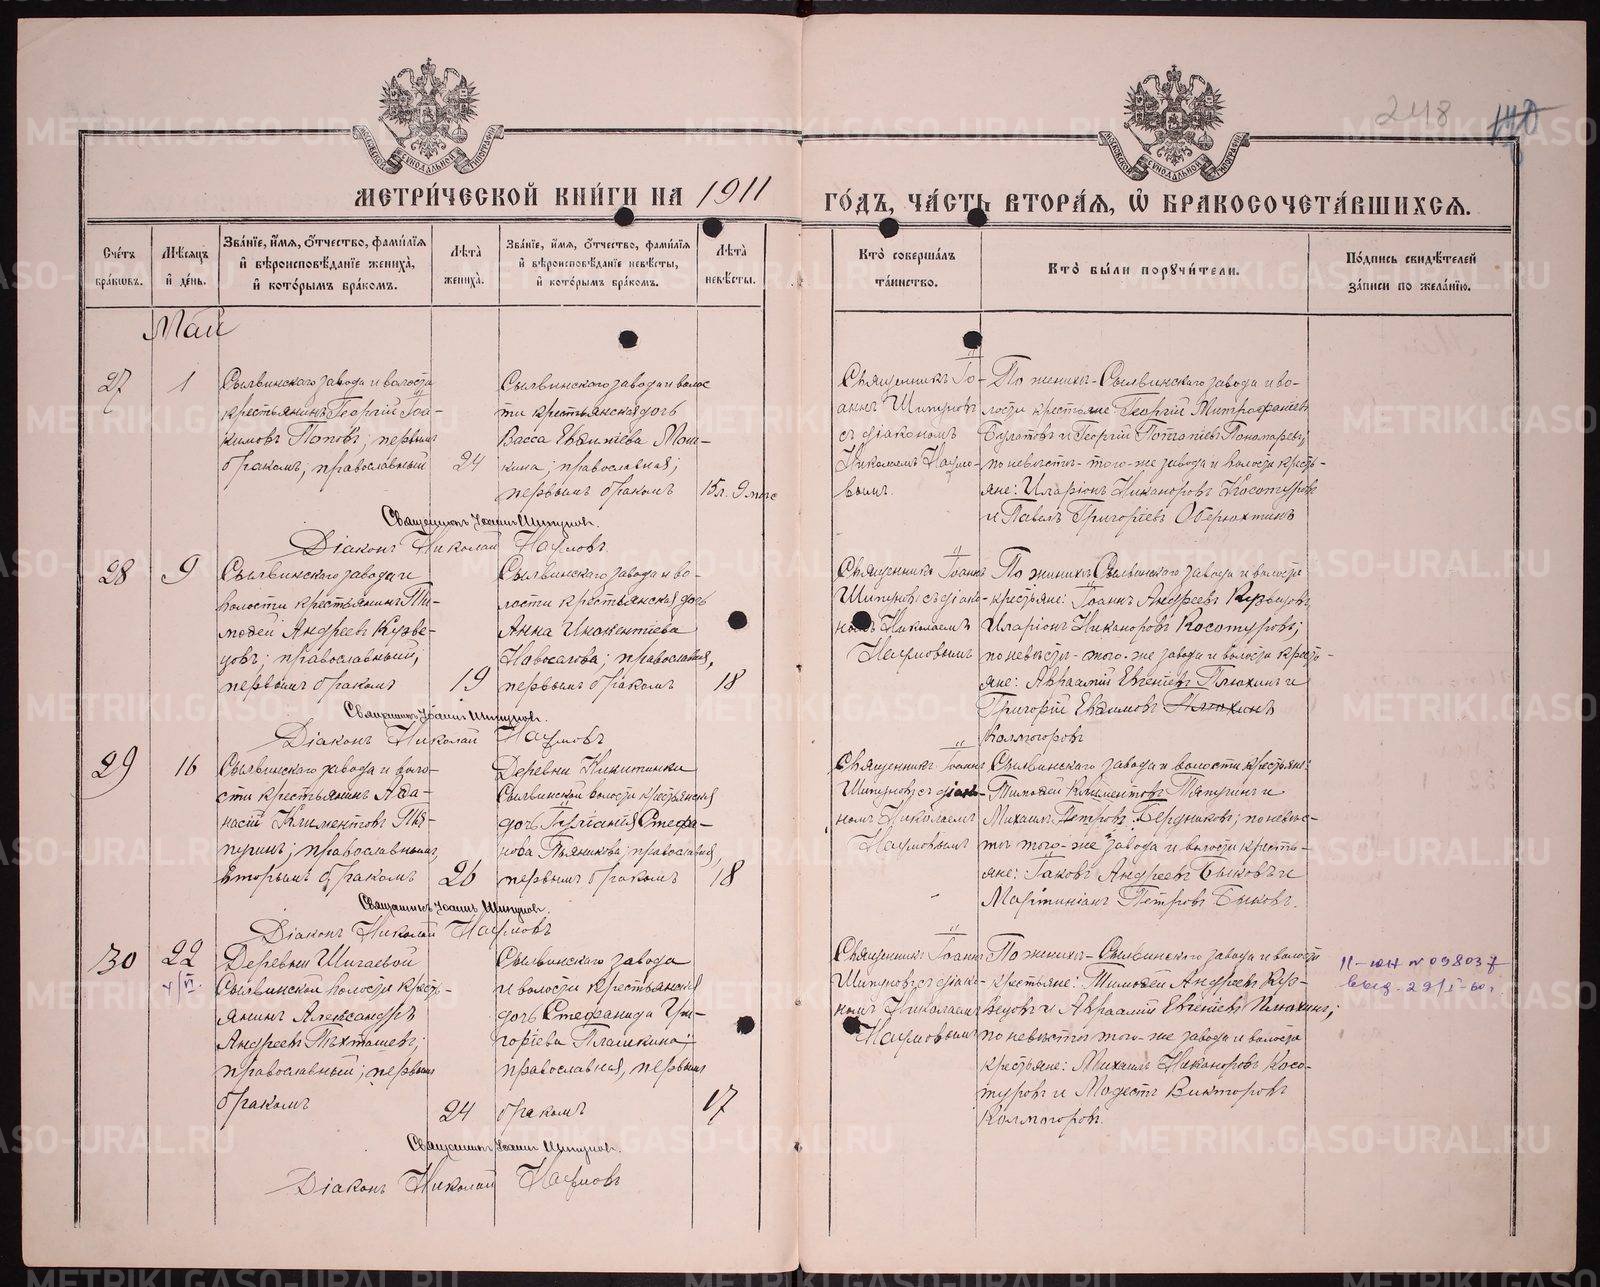 248
МЕТРИ́ЧЕСКОЙ КНИ́ГИ НА 1911
ГО́ДЪ, ЧА́СТЬ ВТОРА́Я, Ѡ҆ БРАКОСОЧЕТА́ВШИХСЯ.
Сче́тъ бра́ковъ.
Мѣ́сяцъ и҆ де́нь.
Зва́нїе, и҆́мя, ѻ҆́тчество, фами́лїя и҆ вѣроисповѣ́данїе жениха̀, и҆ кото́рымъ бра́комъ.
Лѣ́та жениха̀.
Зва́нїе, и҆́мя, ѻ҆́тчество, фами́лїя и҆ вѣроисповѣ́данїе невѣ́сты, и҆ кото́рымъ бра́комъ.
Лѣ́та невѣ́сты.
Кто̀ соверша́лъ та́инство.
Кто̀ бы́ли порꙋчи́тели.
По́дпись свидѣ́телей за́писи по жела́нїю.
Май
27
1
Сылвинскаго завода и волости
крестьянинъ Георгій Іоа-
кимовъ Поповъ, первымъ
бракомъ, православный
24
Сылвинскаго завода и волос
ти крестьянская дочь
Васса Евѳиміева Мош-
кина; православная;
первымъ бракомъ
15 л. 9 мѣс
Священникъ Іо-
аннъ Шипуновъ
съ діакономъ
Николаемъ Наумо-
вымъ.
По женихѣ - Сылвинскаго завода и во-
лости крестьяне Георгій Митрофановъ
Булатовъ и Георгій Потапіевъ Пономаревъ;
по невѣстѣ - того-же завода и волости кресть-
яне: Иларіонъ Никаноровъ Косотуровъ
и Павелъ Григоріевъ Оберюхтинъ
Священникъ Іоаннъ Шипуновъ.
Діаконъ Николай Наумовъ.
28
9
Сылвинскаго завода и
волости крестьянинъ Ти-
моѳей Андреевъ Кузне-
цовъ; православный,
первымъ бракомъ
19
Сылвинскаго завода и во-
лости крестьянская дочь
Анна Инокентіева
Новоселова; православная,
первымъ бракомъ
18
Священникъ Іоаннъ
Шипуновъ съ діако-
номъ Николаемъ
Наумовымъ
По женихѣ Сылвинскаго завода и волости
крестьяне: Іоаннъ Андреевъ Кузнецовъ
Иларіонъ Никаноровъ Косотуровъ;
по невѣстѣ - того-же завода и волости кресть-
яне: Авраамій Евгеніевъ Плюхинъ и
Григорій Евѳимовъ Плюхинъ
Колмогоровъ
Священникъ Іоаннъ Шипуновъ.
Діаконъ Николай Наумовъ
29
16
Сылвинскаго завода и воло-
сти крестьянинъ Аѳа-
насій Климентовъ Тя-
пугинъ; православный,
вторымъ бракомъ
26
Деревни Никитинки
Сылвинской волости крестьянская
дочь Іуліанія Стефа-
нова Пьяникова; православная,
первымъ бракомъ
18
Священникъ Іоаннъ
Шипуновъ съ діако-
номъ Николаемъ
Наумовымъ
Сылвинскаго завода и волости крестьяне:
Тимоѳей Климентовъ Тяпугинъ и
Михаилъ Петровъ Бердниковъ; по невѣс-
тѣ того-же завода и волости кресть-
яне: Іаковъ Андреевъ Быковъ и
Мартиніанъ Петровъ Быковъ.
Священникъ Іоаннъ Шипуновъ.
Діаконъ Николай Наумовъ
30
22
Деревни Шигаевой
Сылвинской волости кресть-
янинъ Александръ
Андреевъ Тѣхташевъ;
православный; первымъ
бракомъ
24
Сылвинскаго завода
и волости крестьянская
дочь Стефанида Гри-
горіева Плашкина;
православная, первымъ
бракомъ
17
Священникъ Іоаннъ
Шипуновъ съ діако-
номъ Николаемъ
Наумовымъ
По женихѣ - Сылвинскаго завода и волости
крестьяне: Тимоѳей Андреевъ Куз-
нецовъ и Авраамій Евгеніевъ Плюхинъ;
по невѣстѣ того-же завода и волости
крестьяне: Михаилъ Никаноровъ Косо-
туровъ и Модестъ Викторовъ
Колмогоровъ.
II-ЮН № 098037
выд. 29/I-60 г.
Священникъ Іоаннъ Шипуновъ.
Діаконъ Николай Наумовъ
METRIKI.GASO-URAL.RU